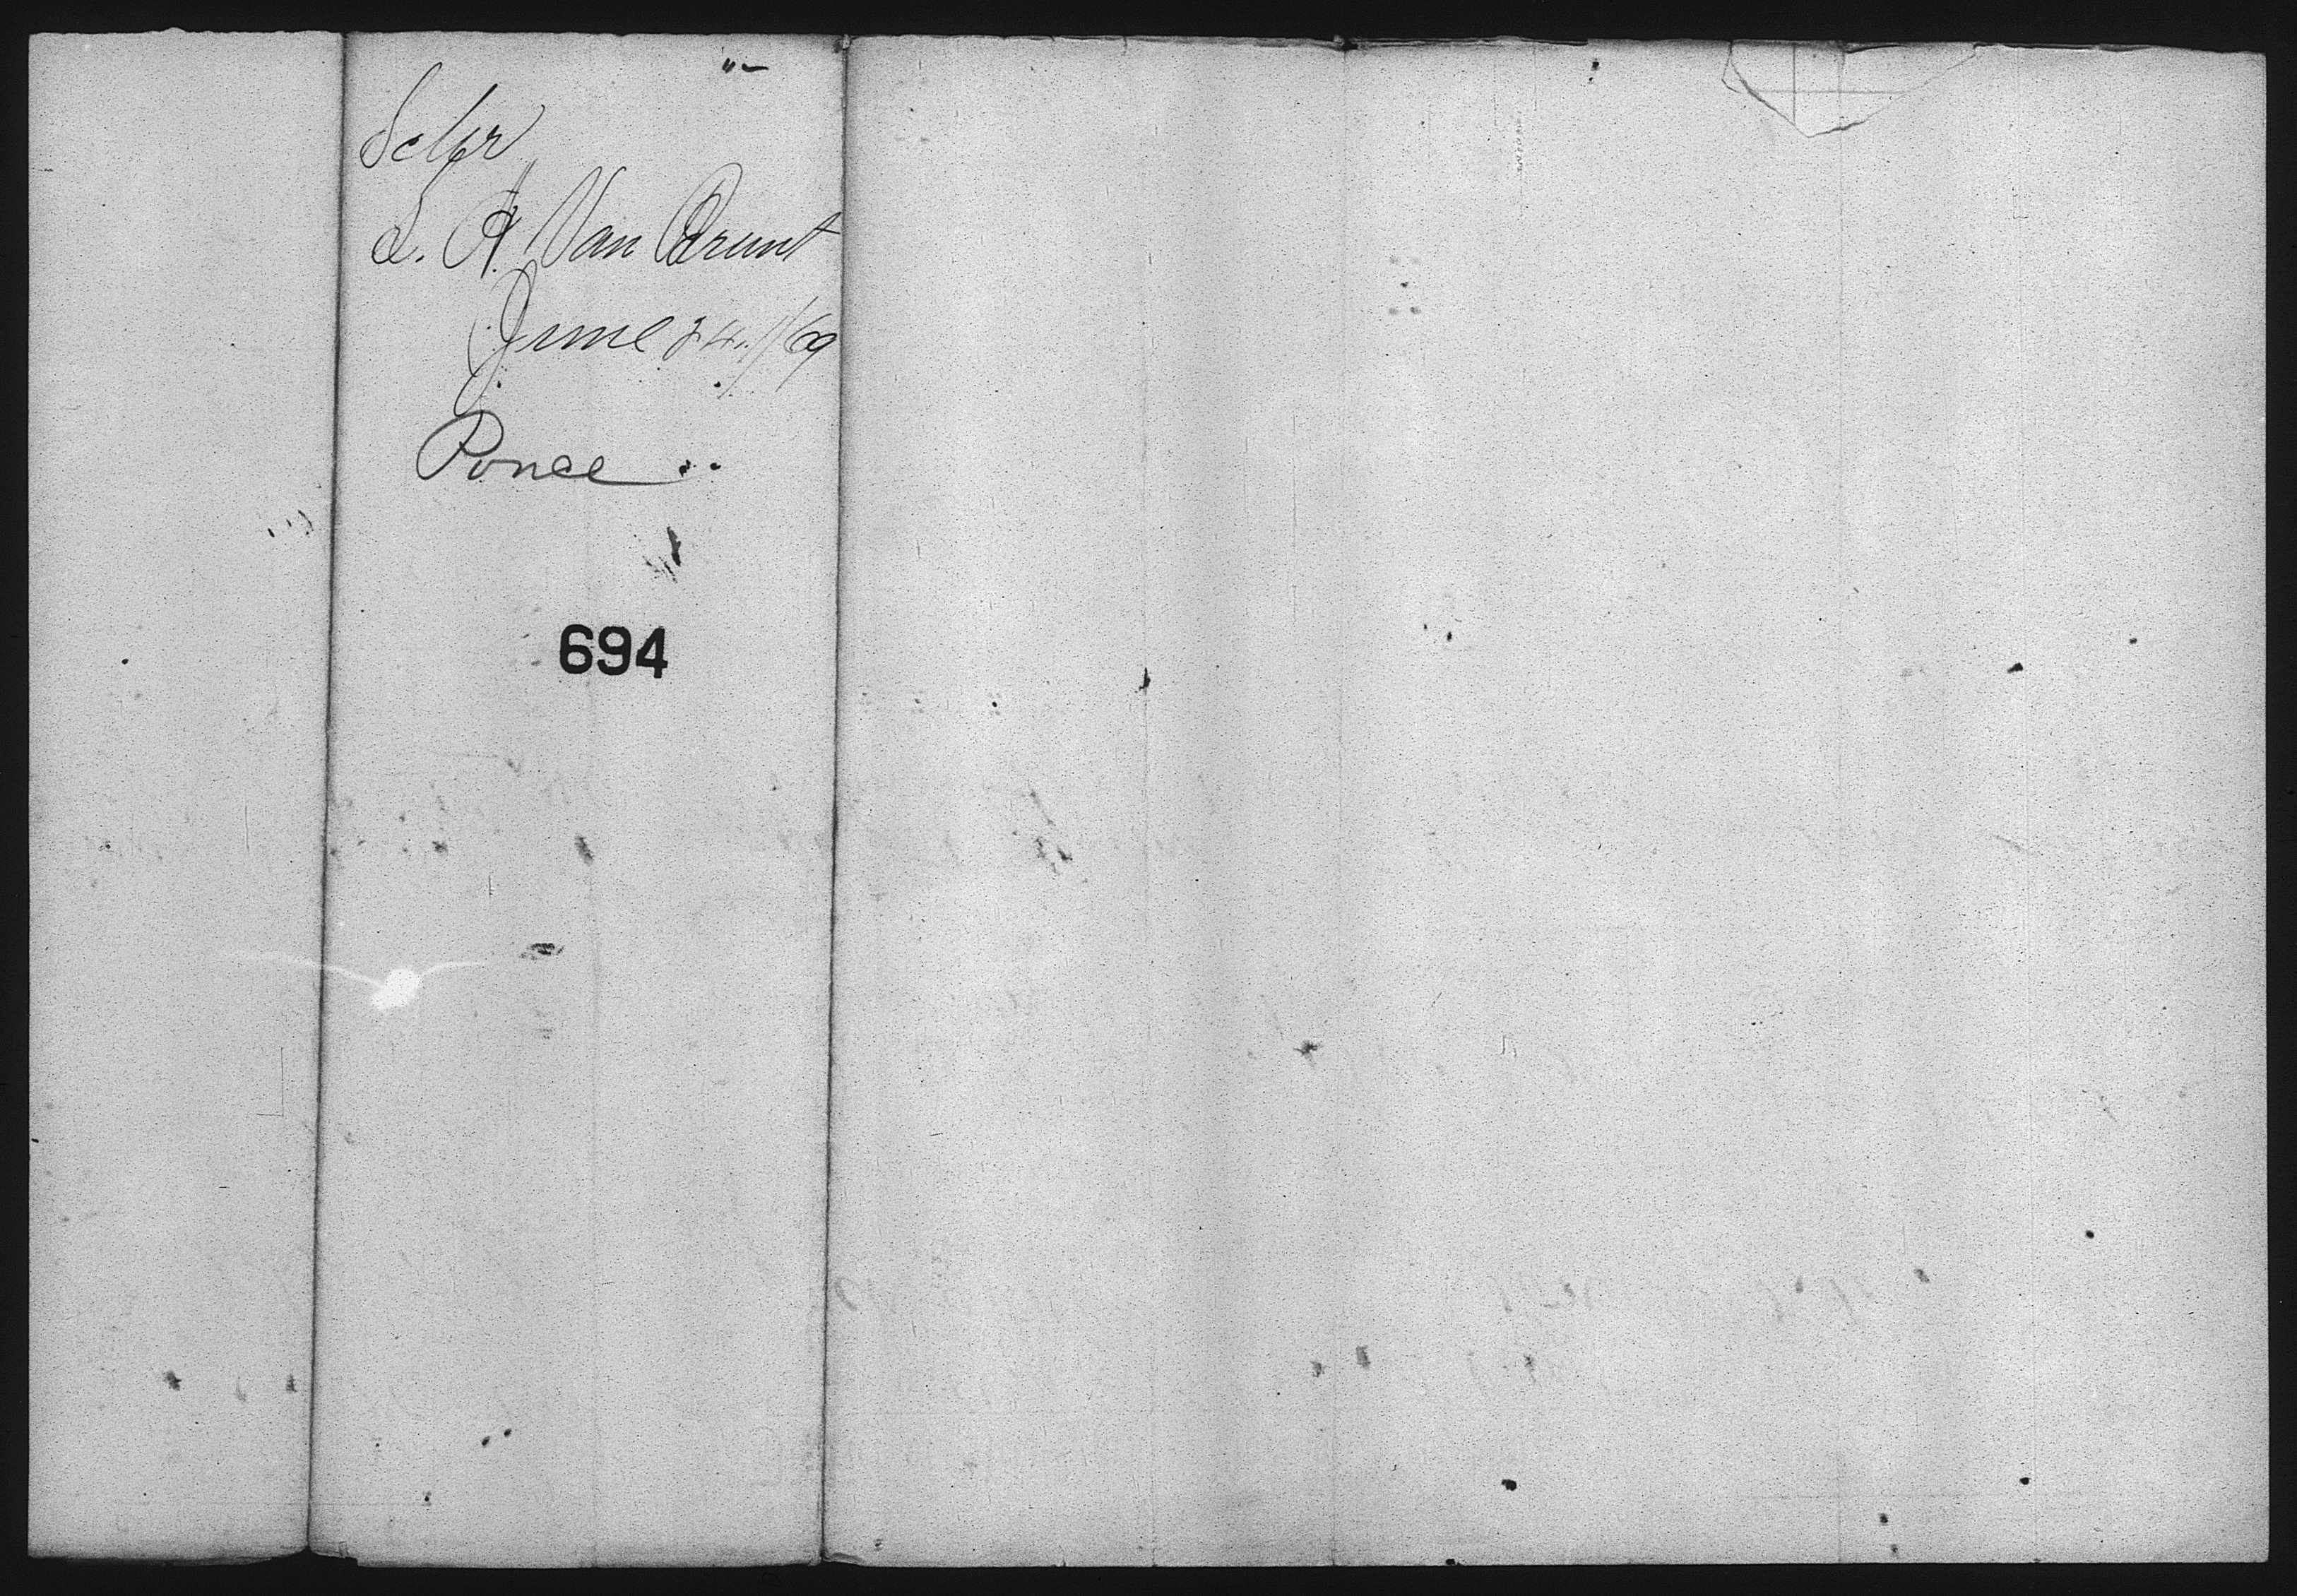 Schr
L. A. Van Brunt
June 24./69
Ponce
694